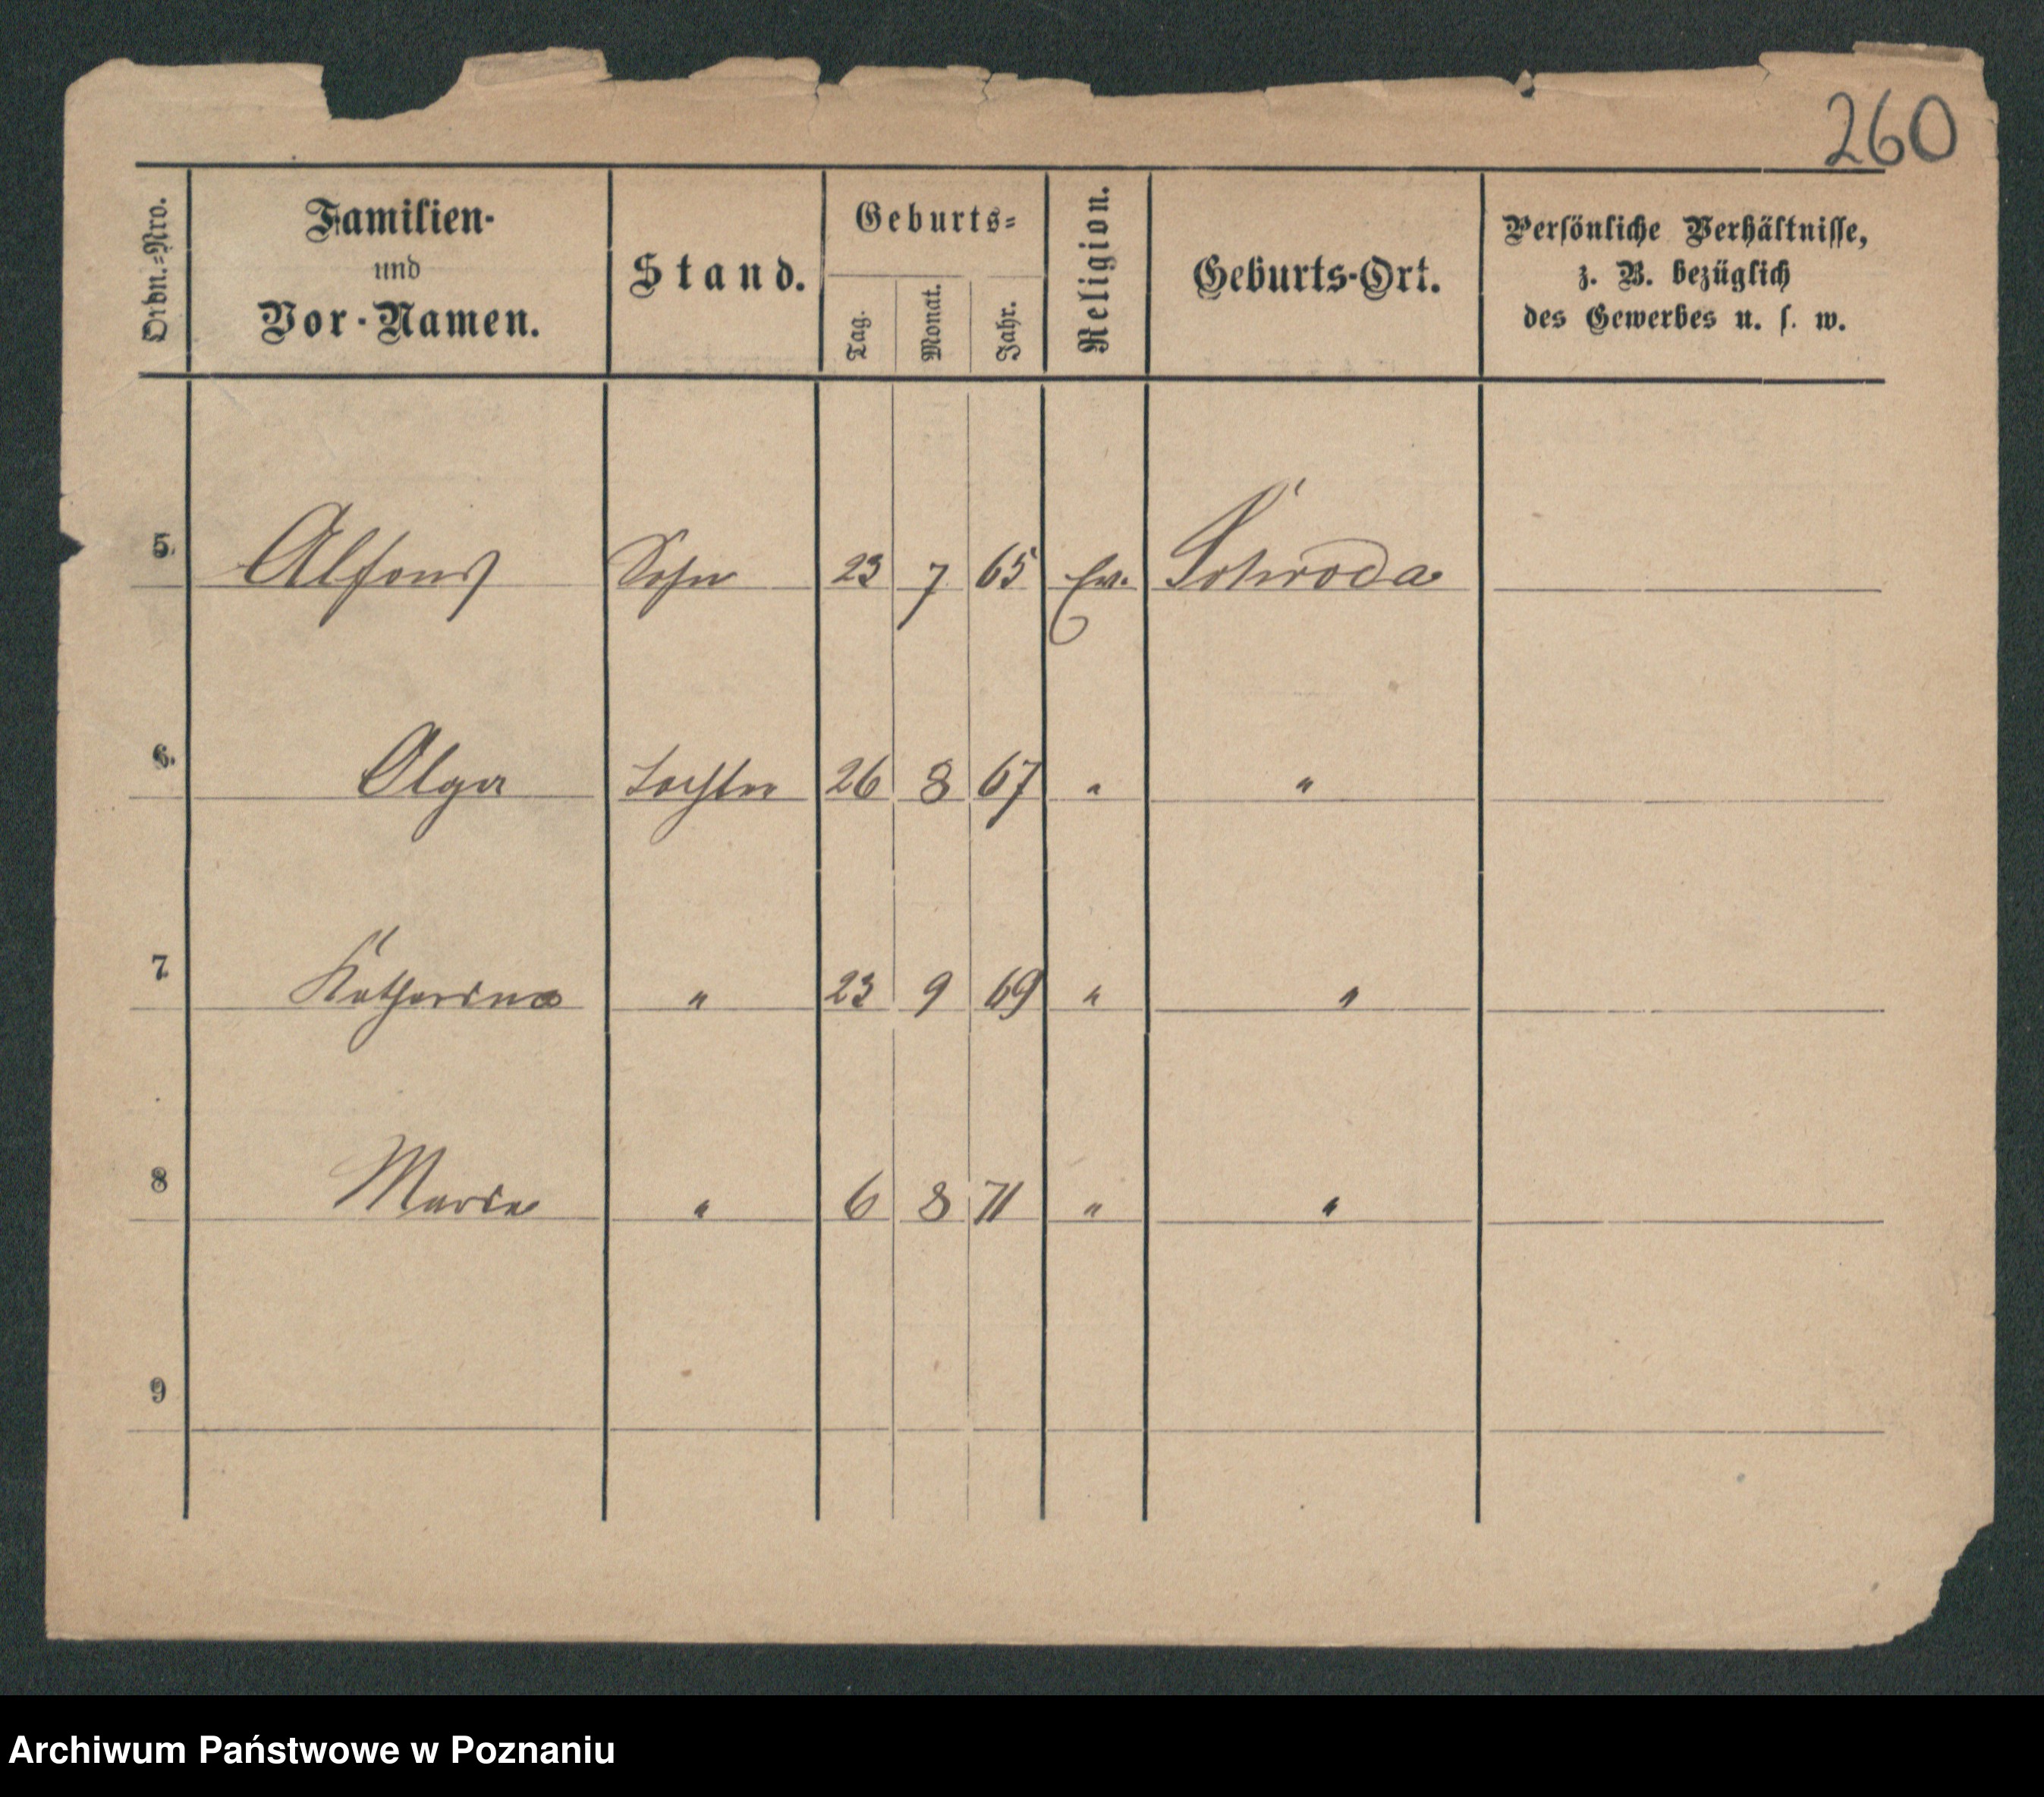 260
Ordn.=Nro.
Familien-
und
Vor-Namen.
Stand.
Geburts=
Tag.
Monat.
Jahr.
Religion.
Geburts-Ort.
Persönliche Verhältnisse,
z. B. bezüglich
des Gewerbes u. s. w.
5. Alfons Sohn 23 7 65 Ev. Schroda
6. Olga Tochter 26 8 67 " "
7 Katharina " 23 9 69 " "
8 Marie " 6 8 71 " "
9
Archiwum Państwowe w Poznaniu